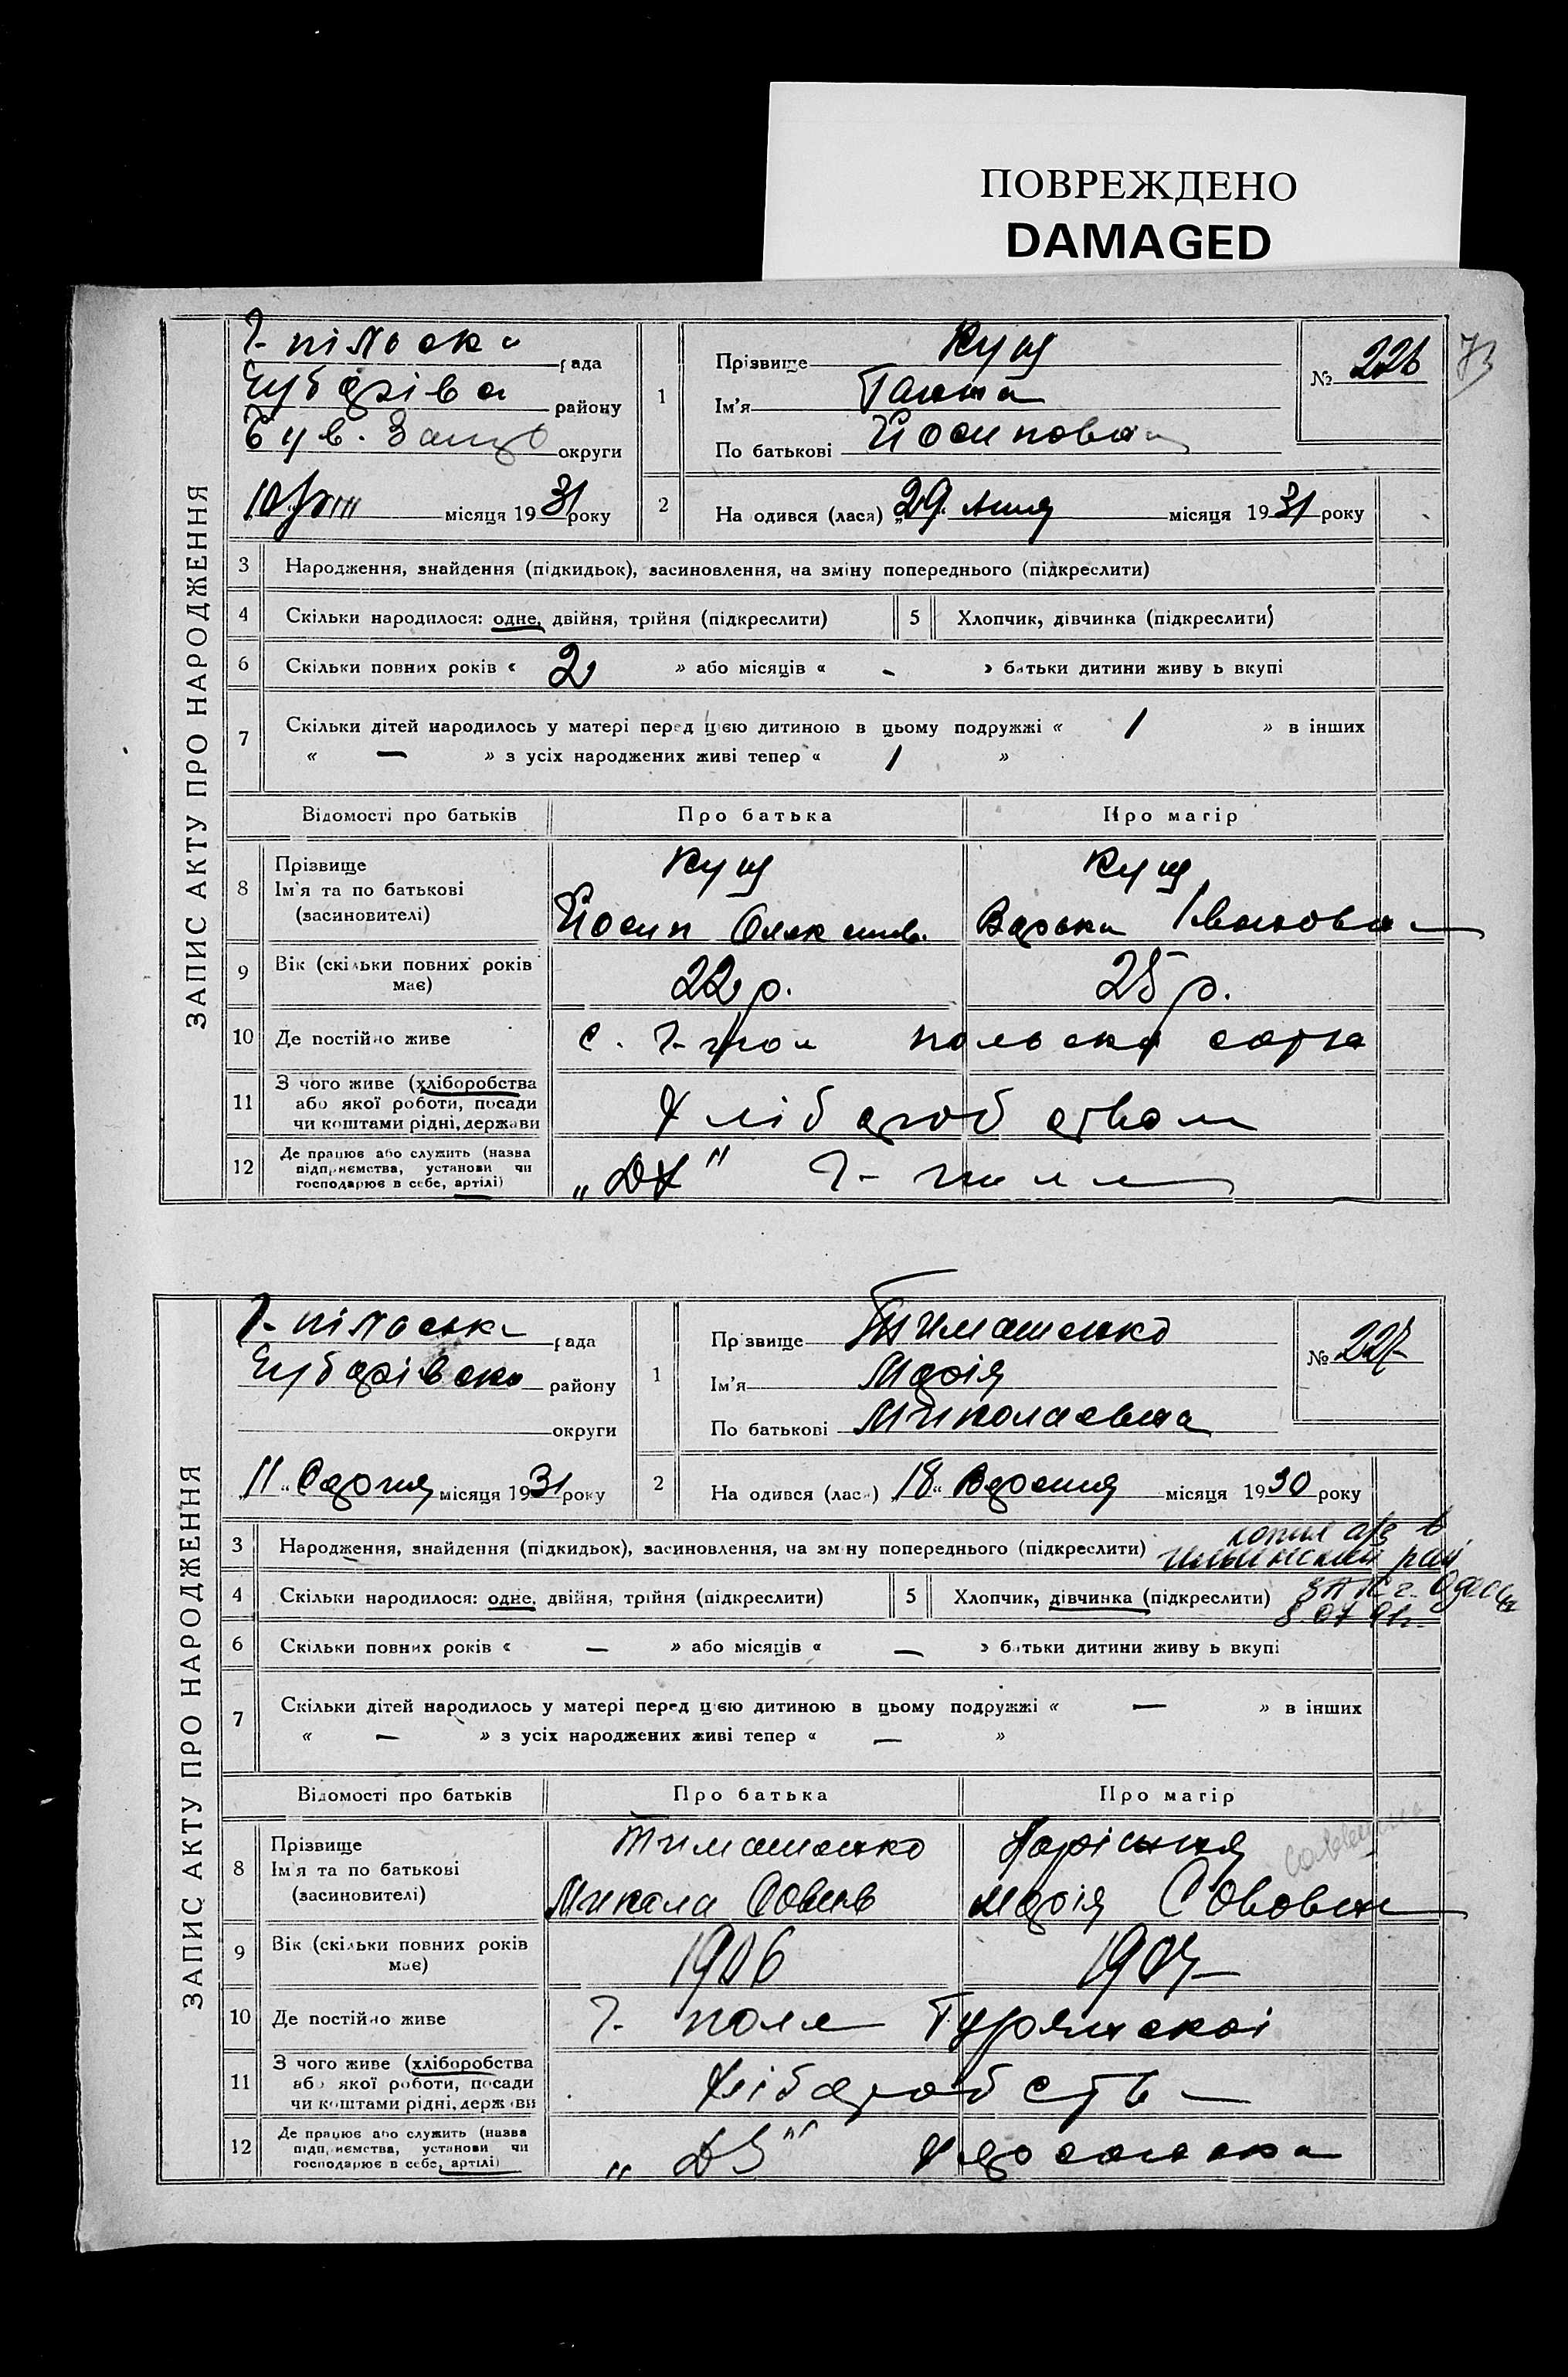 ПОВРЕЖДЕНО
DAMAGED
73
ЗАПИС АКТУ ПРО НАРОДЖЕННЯ
Г-пільська рада
Чубарівс району
Був. Запор округи
10/VIII місяця 1931 року
1
Прізвище Кущ
Ім'я Ганна
По батькові Йосиповна
№ 226
2
На одився (лася) „29 липня місяця 1931 року
3 Народження, знайдення (підкидьок), засиновлення, на зміну попереднього (підкреслити)
4 Скільки народилося: одне, двійня, трійня (підкреслити) 5 Хлопчик, дівчинка (підкреслити)
6 Скільки повних років « 2 » або місяців « - » батьки дитини живу ь вкупі
7 Скільки дітей народилось у матері перед цією дитиною в цьому подружжі « 1 » в інших
« — » з усіх народжених живі тепер « 1 »
Відомості про батьків Про батька Про матір
8 Прізвище
Ім'я та по батькові
(засиновителі)
Кущ Кущ
Йосип Варька Івановна
9 Вік (скільки повних років
має)
22 р. 25 р.
10 Де постійно живе с. Г-поле польська
11 З чого живе (хліборобства
або якої роботи, посади
чи коштами рідні, держави
Хліборобством
12 Де працює або служить (назва
підприємства, установи чи
господарює в себе, артілі)
Г-
ЗАПИС АКТУ ПРО НАРОДЖЕННЯ
Г-пільська рада
Чубарівська району
округи
„11" Серпня місяця 1931 року
1
Прізвище Тимашенко
Ім'я Марія
По батькові Миколаевна
№ 227
2
На одився (лась) „18" Вересня місяця 1930 року
3 Народження, знайдення (підкидьок), засиновлення, на зміну попереднього (підкреслити)
копия а/з в
рай
ЗАГС г. Одессы
8.07.91г.
4 Скільки народилося: одне, двійня, трійня (підкреслити) 5 Хлопчик, дівчинка (підкреслити)
6 Скільки повних років « — » або місяців « — » батьки дитини живу ь вкупі
7 Скільки дітей народилось у матері перед цією дитиною в цьому подружжі « — » в інших
« — » з усіх народжених живі тепер « — »
Відомості про батьків Про батька Про матір
8 Прізвище
Ім'я та по батькові
(засиновителі)
Тимашенко
Микола Марія
9 Вік (скільки повних років
має)
1906
10 Де постійно живе Г. поле
11 З чого живе (хліборобства
або якої роботи, посади
чи коштами рідні, держави
Хліборобств
12 Де працює або служить (назва
підприємства, установи чи
господарює в себе, артілі)